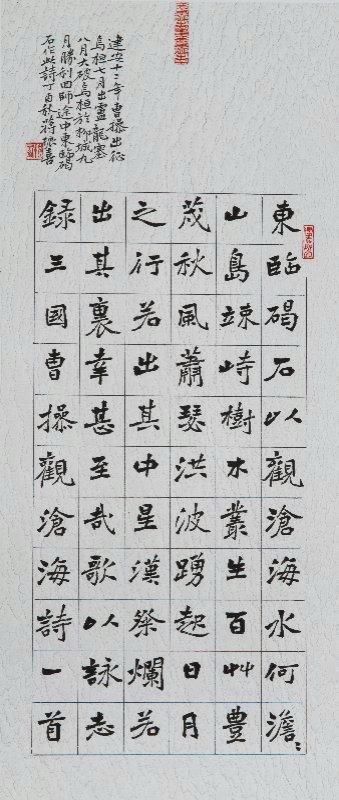 東臨碣石以觀滄海水何澹〻
山島竦峙樹木叢生百艸豐
茂秋風蕭瑟洪波踴起日月
之行若出其中星漢粲爛若
出其裏幸甚至哉歌以詠志
録三國曹操觀滄海詩一首
建安十二年曹操出征
烏桓七月出盧龍塞
八月大破烏桓於柳城九
月勝利回師途中東臨碣
石作此詩丁酉秋蔣振喜